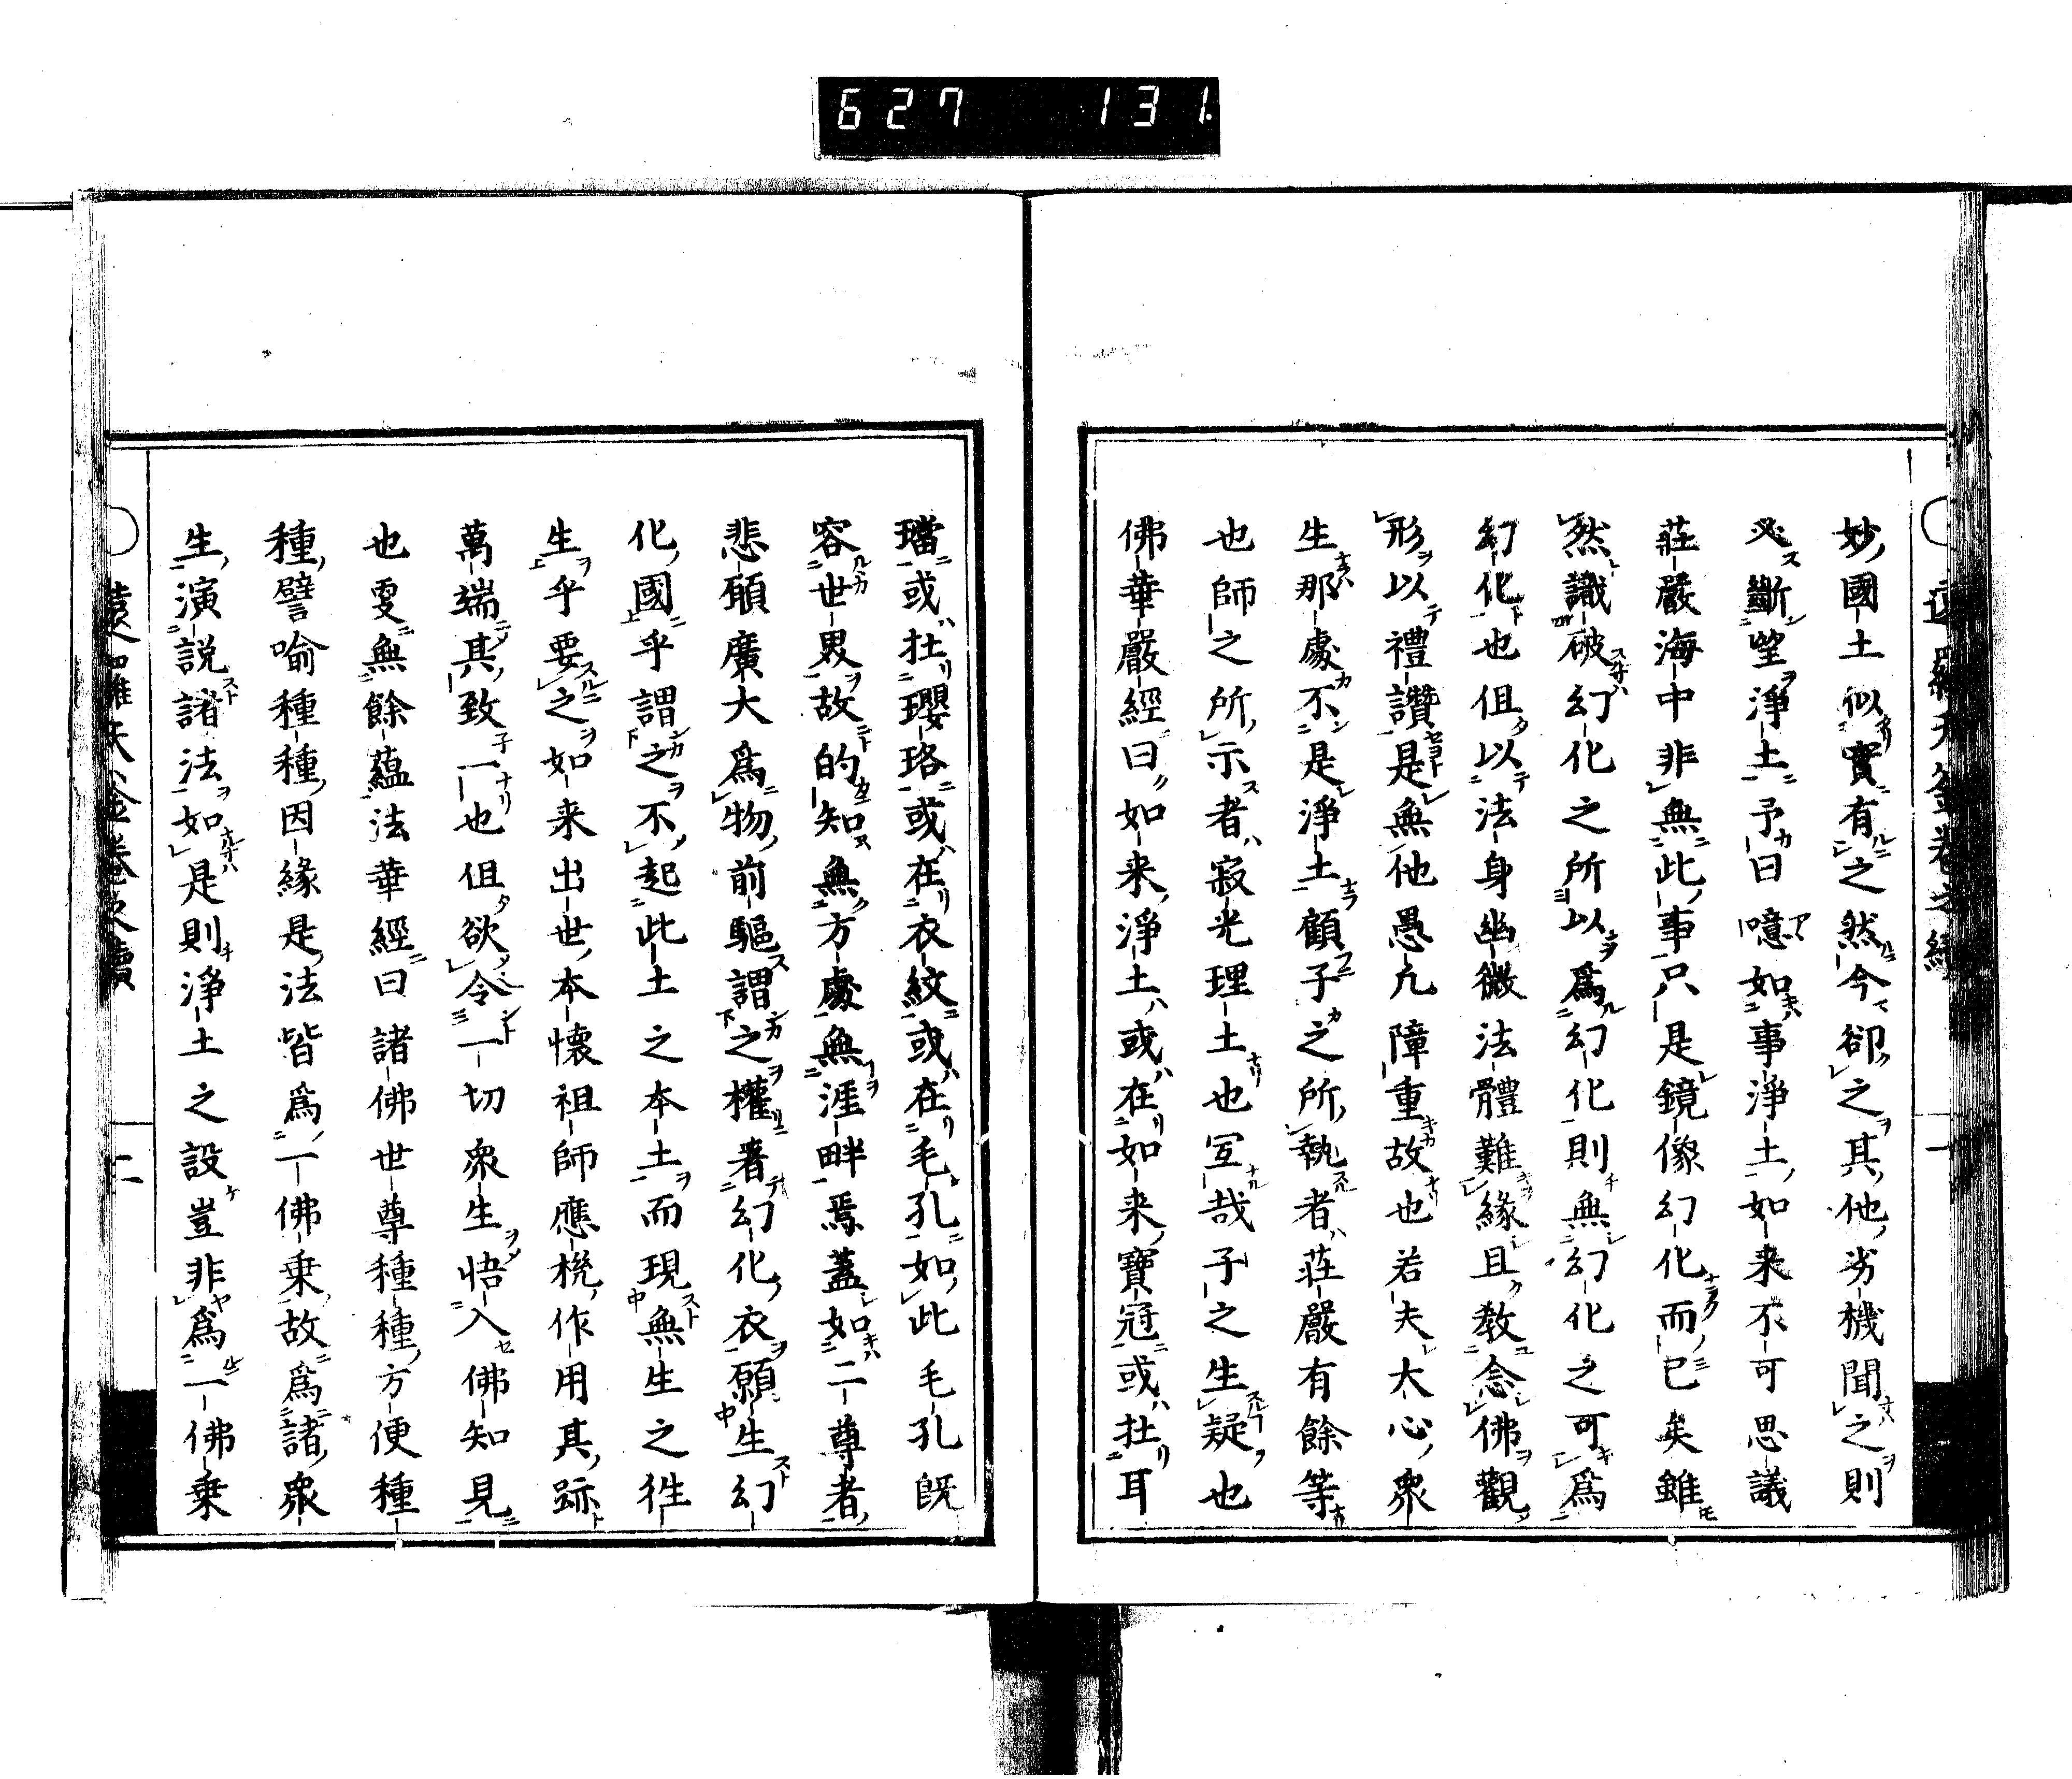 627 131
妙國土似實有之然今卻之其他劣機聞之則
必斷望淨土予曰噫如事淨土如来不可思議
莊嚴海中非無此事只是鏡像幻化而已矣雖
然識破幻化之所以爲幻化則無幻化之可爲
幻化也伹以法身幽微法體難緣且教念佛觀
形以禮讚是無他愚凢障重故也若夫大心衆
生那處不是淨土顧子之所執者莊嚴有餘等
也師之所示者寂光理土也冝哉子之生疑也
佛華嚴經曰如来淨土或在如来寶冠或在耳
璫或在瓔珞或在衣紋或在毛孔如此毛孔既
容世界故的知無方處無涯畔焉蓋如二尊者
悲願廣大爲物前驅謂之權著幻化衣願生幻
化國乎謂之不起此土之本土而現無生之徃
生乎要之如来出世本懷祖師應機作用其跡
萬端其致一也伹欲令一切衆生悟入佛知見
也更無餘蘊法華經曰諸佛世尊種種方便種
種譬喻種種因緣是法皆爲一佛乗故爲諸衆
生演説諸法如是則淨土之設豈非爲一佛乗
二